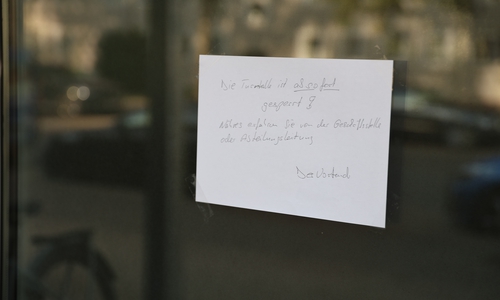 Die Turnhalle ist ab sofort
gesperrt !
Näheres erfahren Sie von der Geschäftsstelle
oder Abteilungsleitung
Der Vorstand